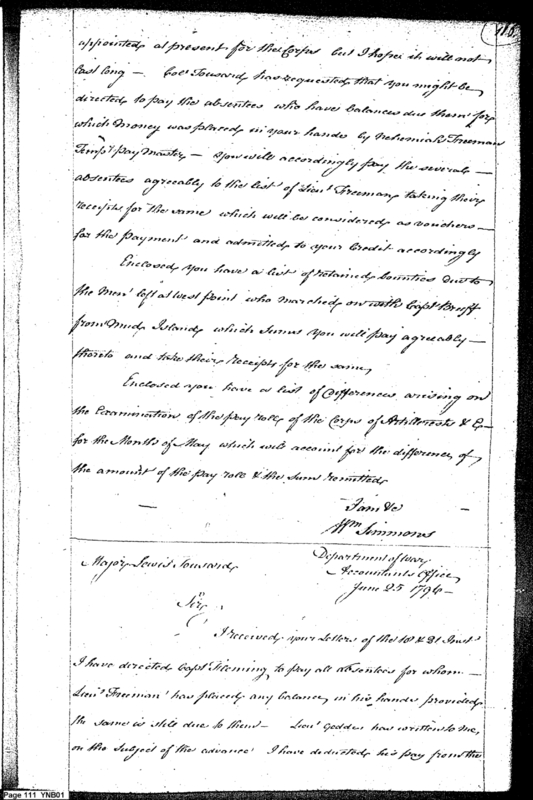 116
appointed at present for the Corps but I hope it will not
last long — Col. Tousard has requested that you might be
directed to pay the absentees who have balances due them for
which money was placed in your hands by Nehemiah Freeman
Tempy. pay Master — You will accordingly pay the several —
absentees agreeably to the list of Lieut. Freeman, taking their
receipts for the same which will be considered as vouchers —
for the payment and admitted to your Credit accordingly
Enclosed you have a list of retained bounties due to
the Men left at West point who marched on with Capt. Bruff
from Mud Island, which Sums you will pay agreeably —
thereto and take their receipts for the same,
Enclosed you have a list of differences arising on
the Examination of the pay rolls of the Corps of Artillerists & E—
for the Months of May which will account for the difference of
the amount of the pay roll & the sum remitted
— I am &c —
Wm. Simmons
Department of War
Major Lewis Tousard,
Accountants Office,
June 25 1796 —
Sir,
I received your Letters of the 18 & 21 Inst.
I have directed Capt. Fleming to pay all absentees for whom —
Lieut. Freeman has placed any balance, in his hands provided
the same is still due to them — Lieut. Geddes has written to me,
on the Subject of the advance I have deducted his pay from the
Page 111 YNB01